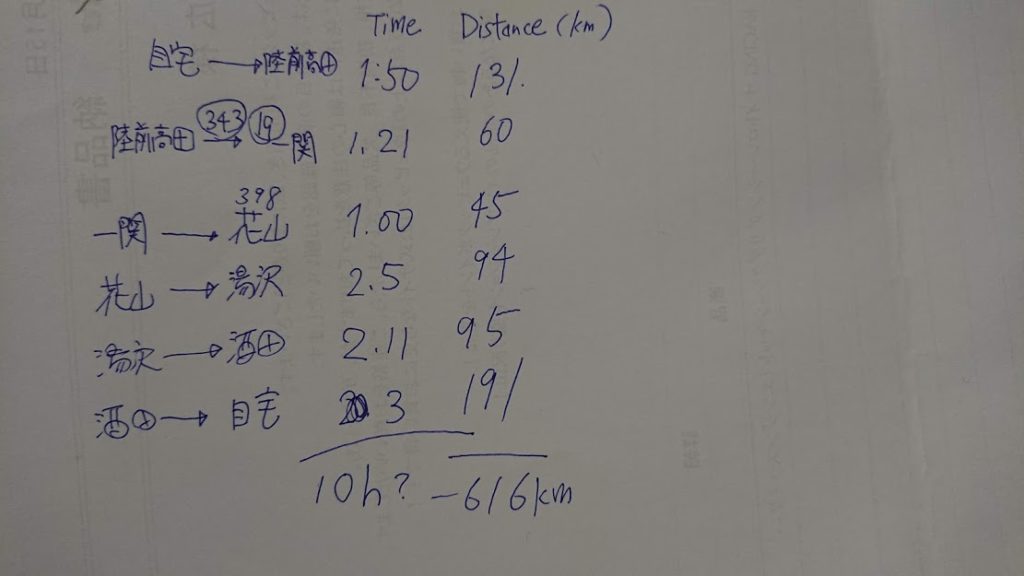 Time Distance (km)
自宅 → 陸前高田 1:50 131.
陸前高田 343 → 19 一関 1.21 60
398
一関 → 花山 1.00 45
花山 → 湯沢 2.5 94
湯沢 → 酒田 2.11 95
酒田 → 自宅 3 191
10h? - 616km